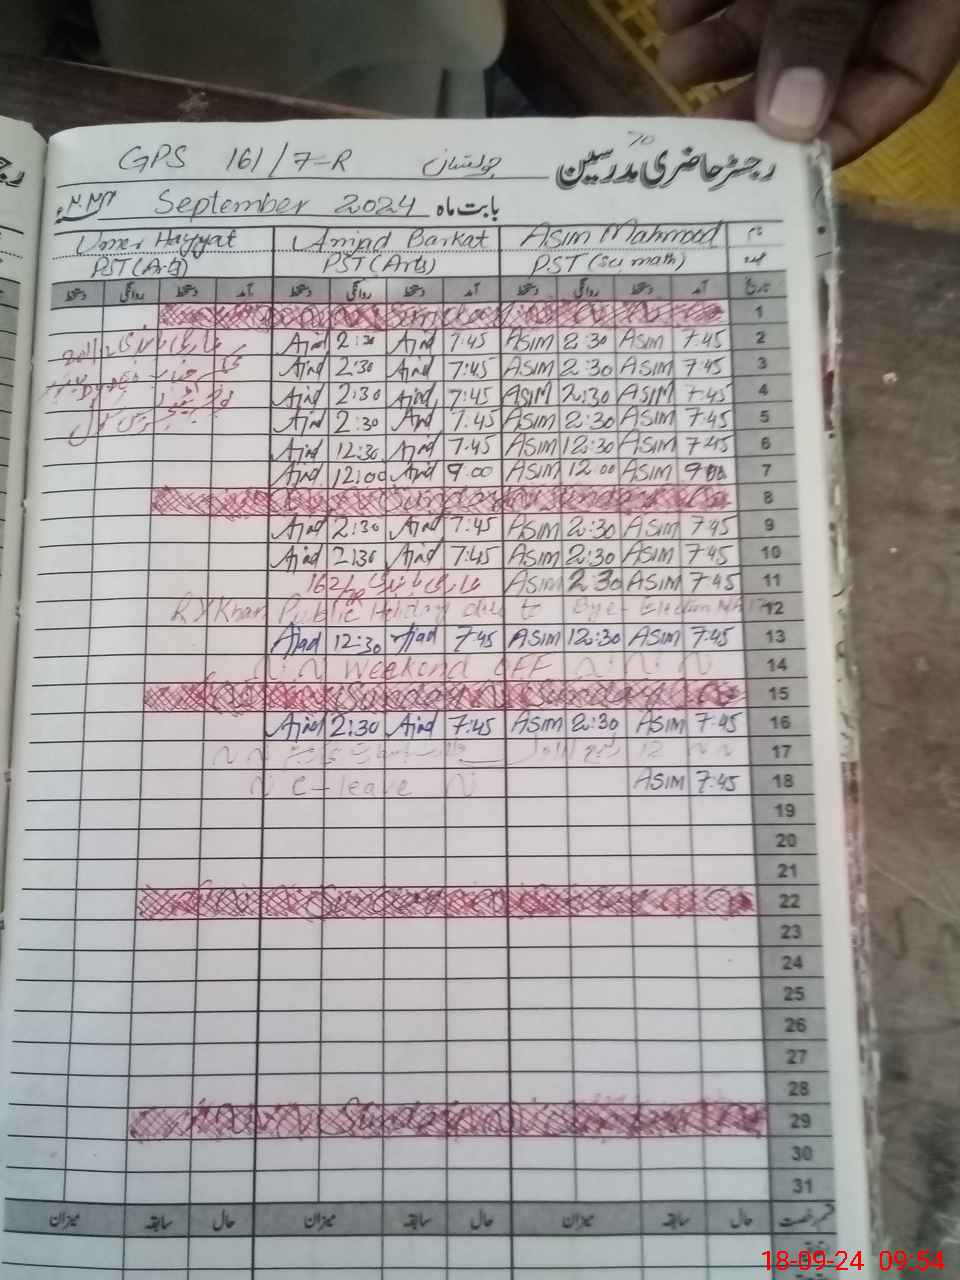 GPS 161/7-R چولستان رجسٹر حاضری مدرسین
September 2024 بابت ماہ
Umer Hayyat Amjad Barkat Asim Mahmood نام
PST (Arts) PST (Arts) PST (sci math) عہدہ
دستخط روانگی دستخط آمد دستخط روانگی دستخط آمد دستخط روانگی دستخط آمد تاریخ
Sunday 1
Ajad 2:30 Ajad 7:45 ASIM 2:30 ASIM 7:45 2
Ajad 2:30 Ajad 7:45 ASIM 2:30 ASIM 7:45 3
Ajad 2:30 Ajad 7:45 ASIM 2:30 ASIM 7:45 4
Ajad 2:30 Ajad 7:45 ASIM 2:30 ASIM 7:45 5
Ajad 12:30 Ajad 7:45 ASIM 12:30 ASIM 7:45 6
Ajad 12:00 Ajad 9:00 ASIM 12:00 ASIM 9:00 7
Sunday Sunday 8
Ajad 2:30 Ajad 7:45 ASIM 2:30 ASIM 7:45 9
Ajad 2:30 Ajad 7:45 ASIM 2:30 ASIM 7:45 10
162/ ASIM 2:30 ASIM 7:45 11
R Y Khan Public Holiday due to Bye-Election NA 12
Ajad 12:30 Ajad 7:45 ASIM 12:30 ASIM 7:45 13
Weekend OFF 14
Sunday Sunday 15
Ajad 2:30 Ajad 7:45 ASIM 2:30 ASIM 7:45 16
12 ربیع الاول 17
C-leave ASIM 7:45 18
19
20
21
Sunday 22
23
24
25
26
27
28
Sunday 29
30
31
میزان سابقہ حال میزان سابقہ حال میزان سابقہ حال قسم رخصت
18-09-24 09:54